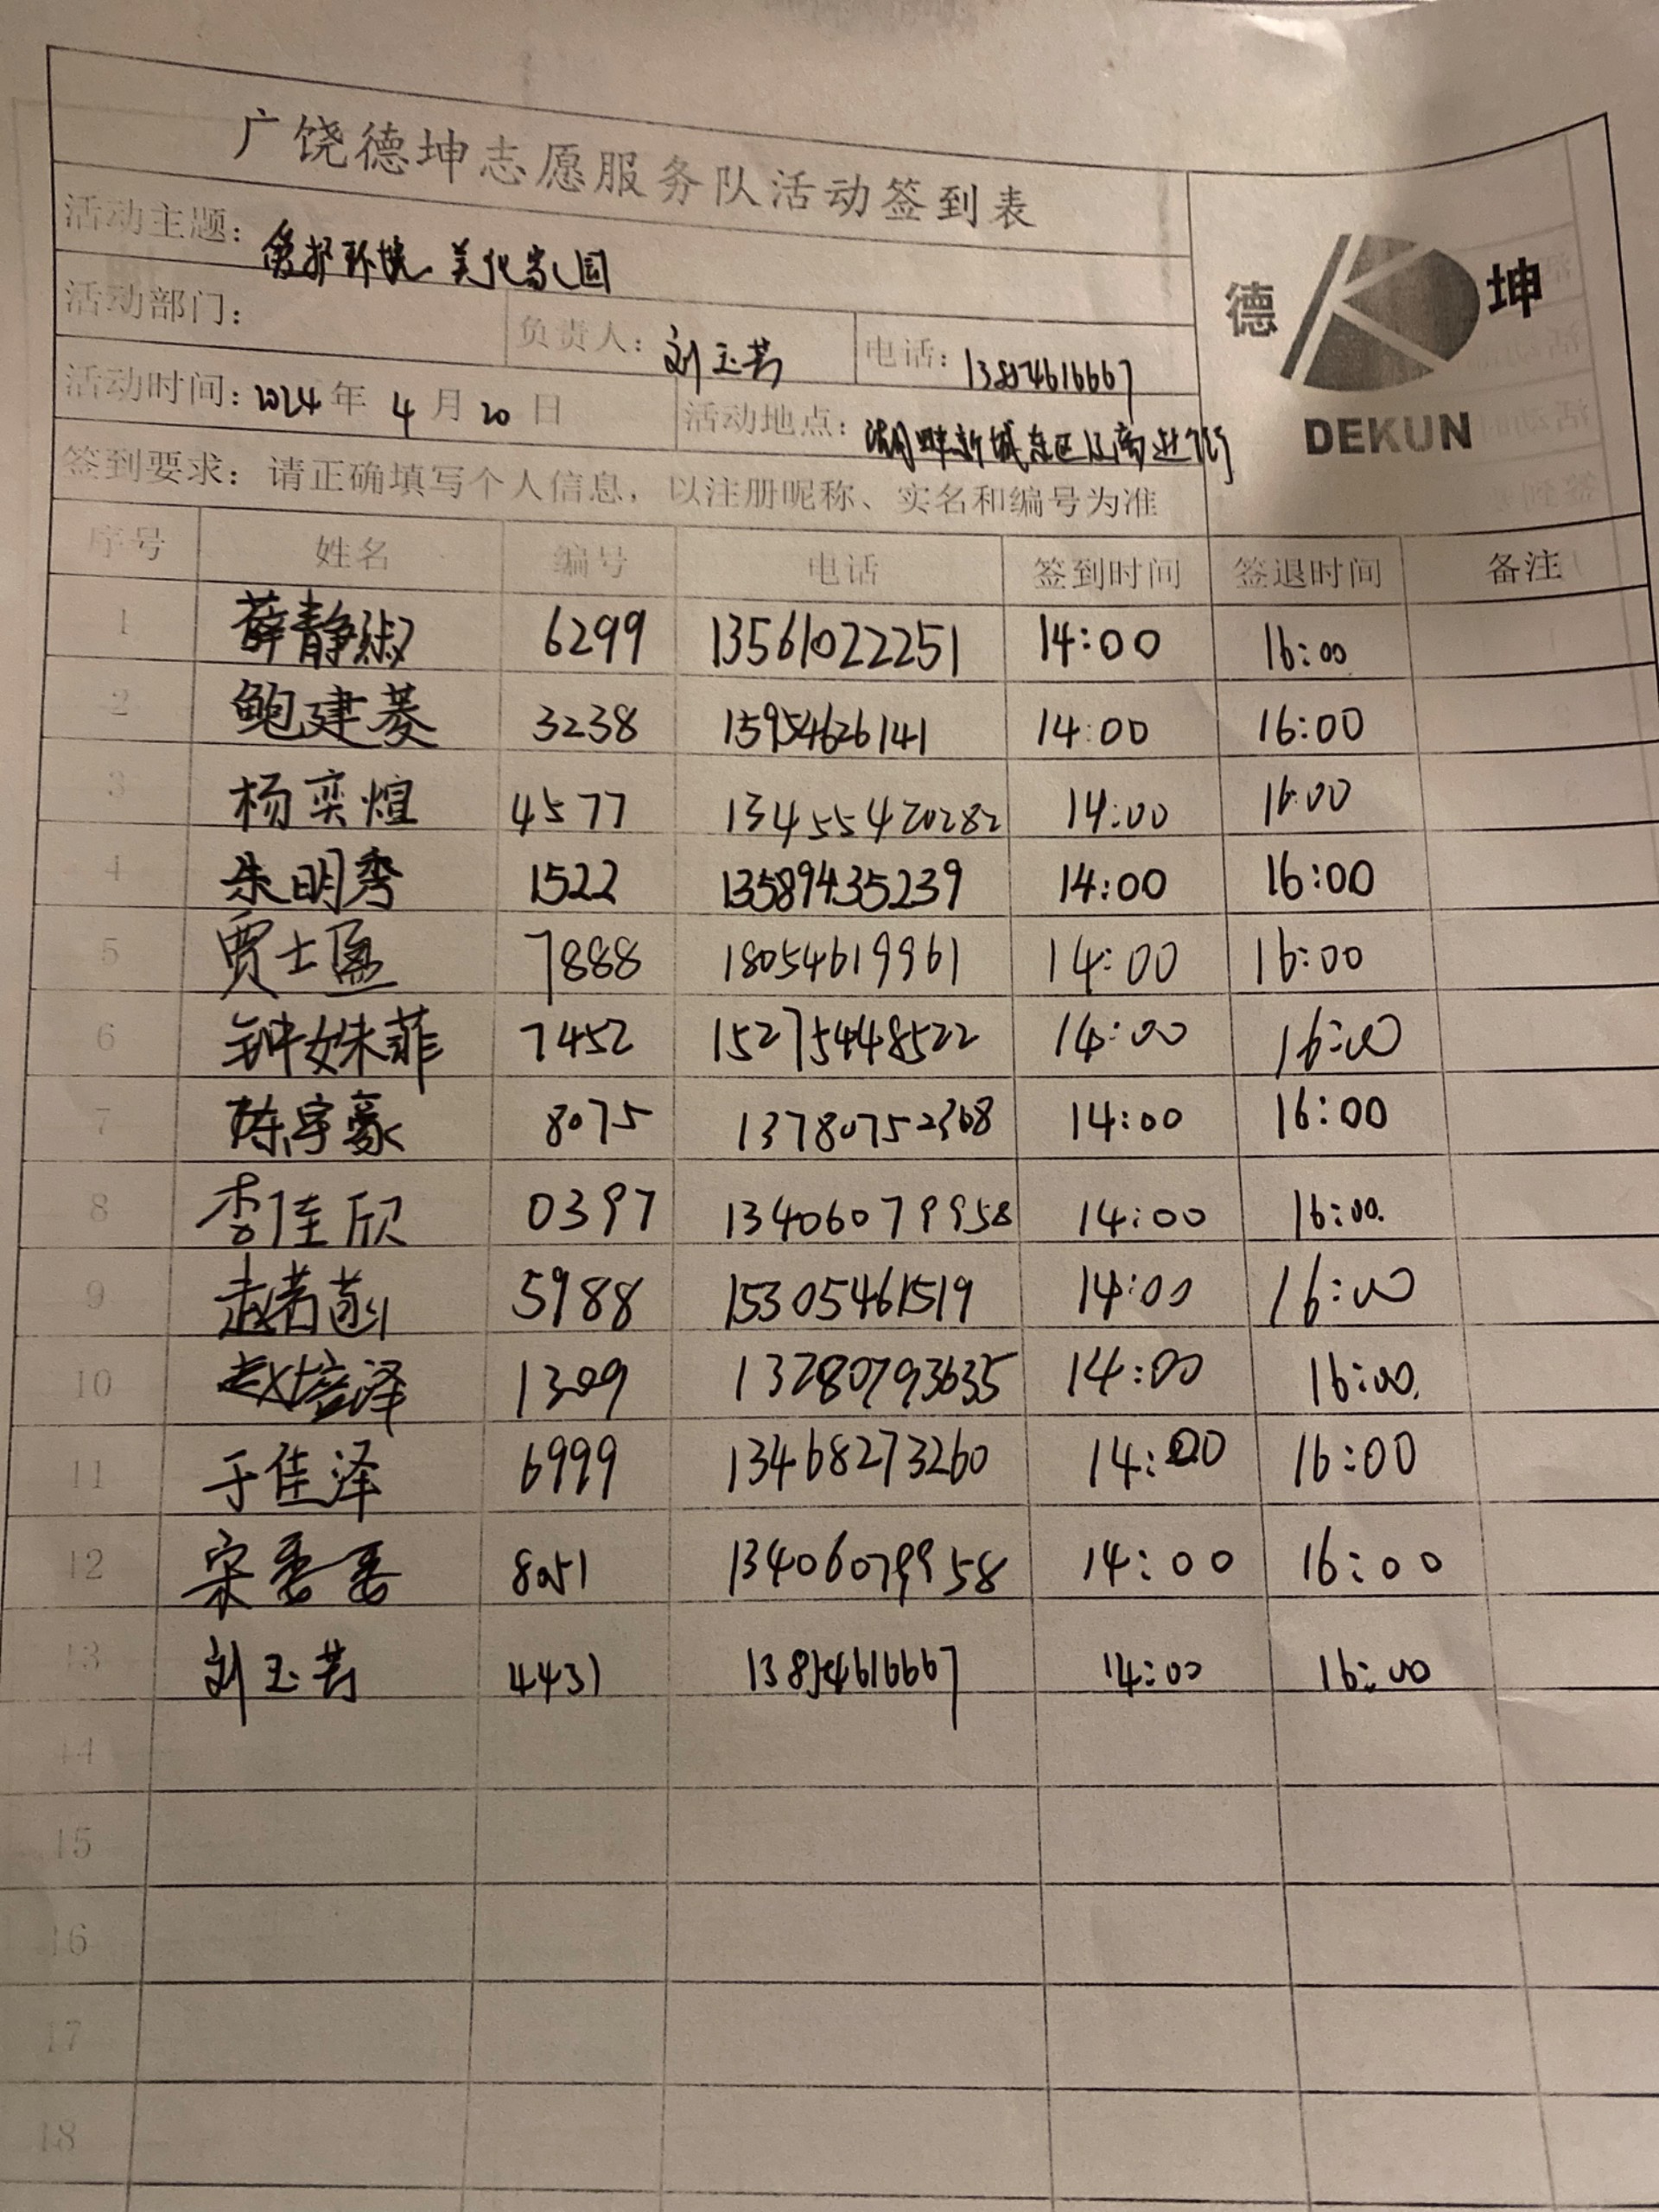 广饶德坤志愿服务队活动签到表
活动主题：爱护环境 美化家园
德 坤
DEKUN
活动部门： 负责人：刘玉芳 电话：13854616667
活动时间：2024年4月20日 活动地点：
签到要求：请正确填写个人信息，以注册昵称、实名和编号为准
序号 姓名 编号 电话 签到时间 签退时间 备注
1 薛静淑 6299 13561022251 14:00 16:00
2 鲍建菱 3238 15954626141 14:00 16:00
3 杨奕煊 4577 13455420282 14:00 16:00
4 朱明秀 1522 13589435239 14:00 16:00
5 贾士盈 7888 18054619961 14:00 16:00
6 钟姝菲 7452 15275448522 14:00 16:00
7 陈宇豪 8075 13780752368 14:00 16:00
8 李佳欣 0397 13406079958 14:00 16:00.
9 赵若涵 5988 15305461519 14:00 16:00
10 赵培泽 1309 13280793635 14:00 16:00.
11 于佳泽 6999 13468273260 14:00 16:00
12 宋委委 8051 13406079958 14:00 16:00
13 刘玉芳 4431 13854616667 14:00 16:00
14
15
16
17
18